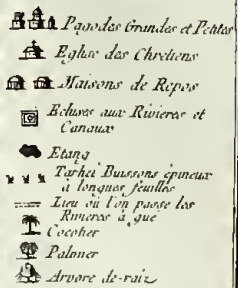 Pagodes Grandes et Petites
Eglise des Chrétiens
Maisons de Repos
Ecluses aux Rivieres et
Canaux
Etang
Tarhei Buissons épineux
à longues feuilles
Lieu où l'on passe les
Rivieres à gué
Cocotier
Palmier
Arvore de-raiz